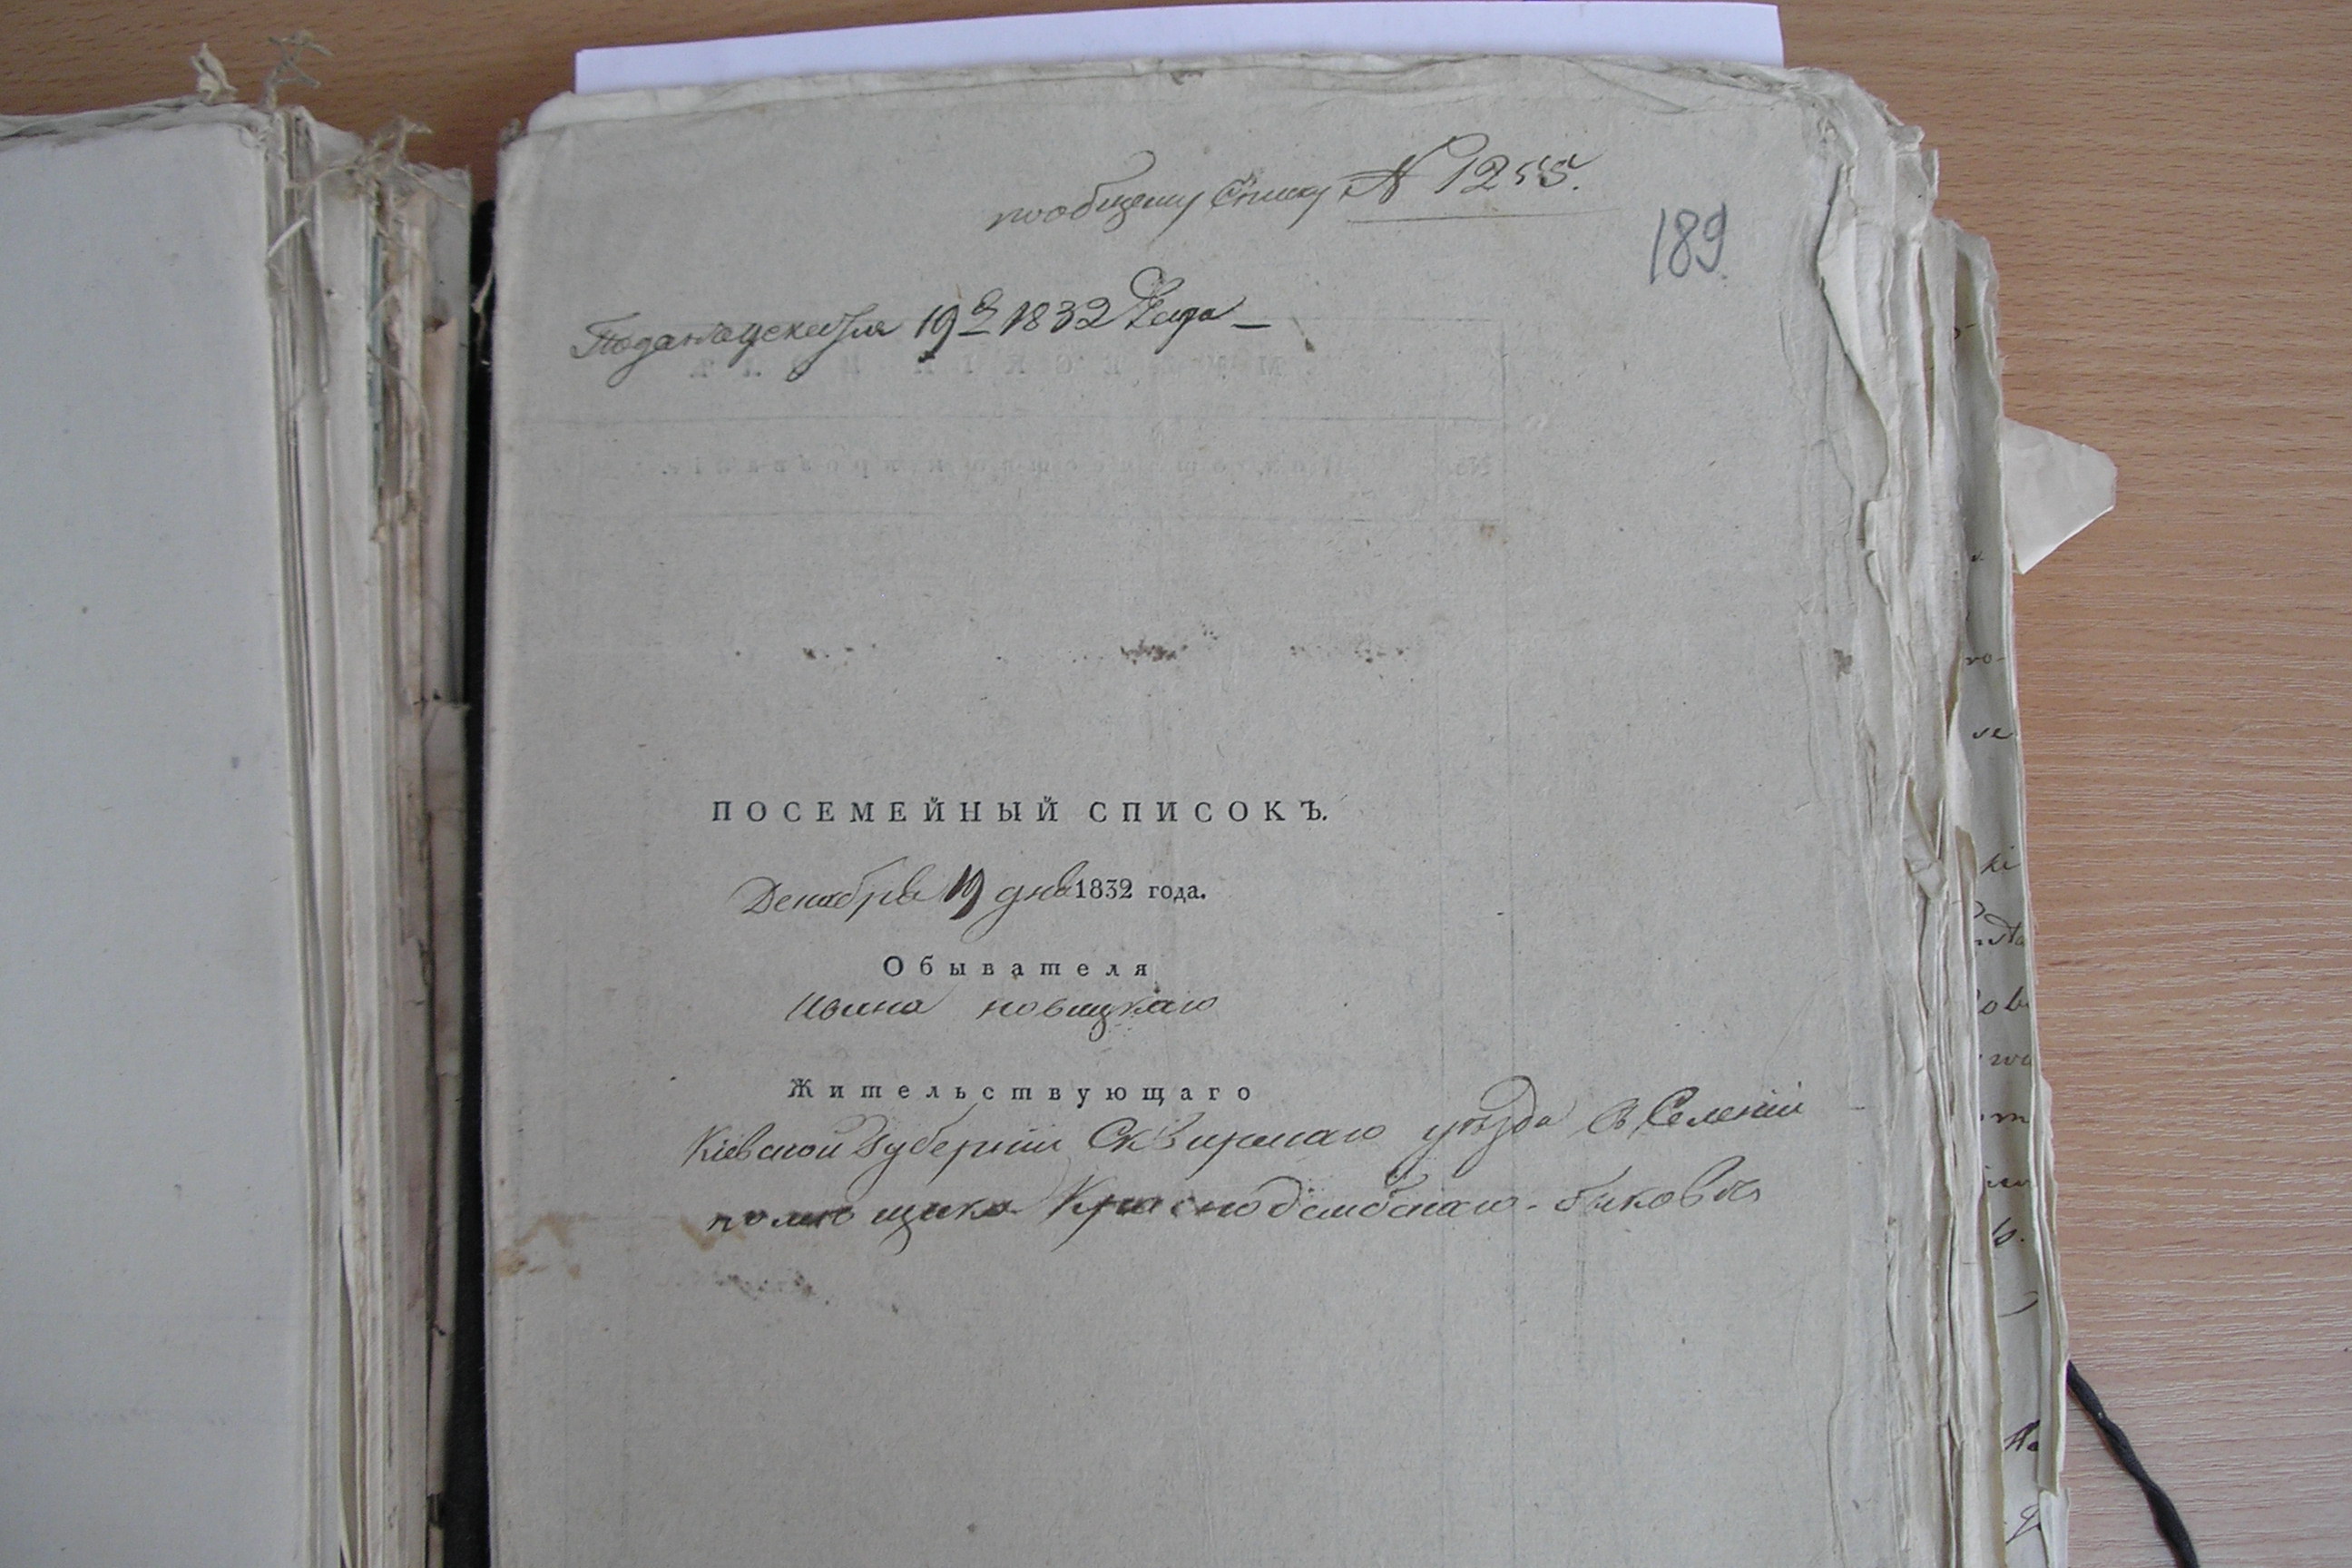 пообщему Списку № 1255.
189
Подан Декабря 19го 1832 Года
ПОСЕМЕЙНЫЙ СПИСОКЪ.
Декабря 19 дня 1832 года.
Обывателя
Ивана новицкаго
Жительствующаго
Кіевской Губерніи Сквирскаго уѣзда въ Селеніи
помѣщика Красно